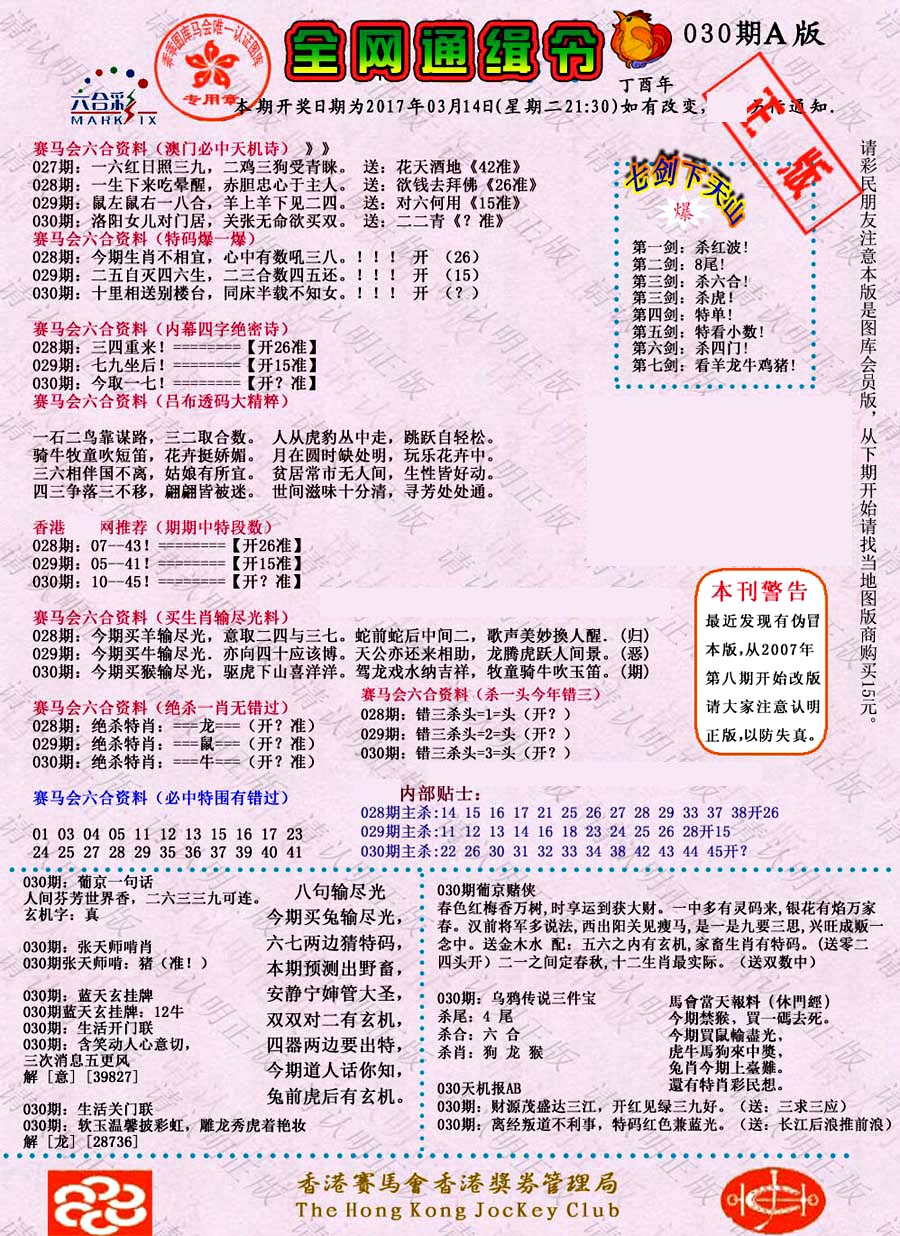 全网通缉令
030期A版
丁酉年
六合彩
MARK SIX
专用章
正版
本期开奖日期为2017年03月14日(星期二21:30)如有改变,
通知.
赛马会六合资料（澳门必中天机诗）》》
027期：一六红日照三九，二鸡三狗受青睐。 送：花天酒地《42准》
028期：一生下来吃晕醒，赤胆忠心于主人。 送：欲钱去拜佛《26准》
029期：鼠左鼠右一八合，羊上羊下见二四。 送：对六何用《15准》
030期：洛阳女儿对门居，关张无命欲买双。 送：二二青《？准》
赛马会六合资料（特码爆一爆）
028期：今期生肖不相宜，心中有数吼三八。！！！ 开 （26）
029期：二五自灭四六生，二三合数四五还。！！！ 开 （15）
030期：十里相送别楼台，同床半载不知女。！！！ 开 （？）
赛马会六合资料（内幕四字绝密诗）
028期：三四重来！========【开26准】
029期：七九坐后！========【开15准】
030期：今取一七！========【开？准】
赛马会六合资料（吕布透码大精粹）
一石二鸟靠谋路，三二取合数。 人从虎豹丛中走，跳跃自轻松。
骑牛牧童吹短笛，花卉挺娇媚。 月在圆时缺处明，玩乐花卉中。
三六相伴国不离，姑娘有所宜。 贫居常市无人间，生性皆好动。
四三争落三不移，翩翩皆被迷。 世间滋味十分清，寻芳处处通。
香港 网推荐（期期中特段数）
028期：07--43！========【开26准】
029期：05--41！========【开15准】
030期：10--45！========【开？准】
赛马会六合资料（买生肖输尽光料）
028期：今期买羊输尽光，意取二四与三七。蛇前蛇后中间二，歌声美妙换人醒．(归)
029期：今期买牛输尽光．亦向四十应该博。天公亦还来相助，龙腾虎跃人间景。(恶)
030期：今期买猴输尽光，驱虎下山喜洋洋。驾龙戏水纳吉祥，牧童骑牛吹玉笛。(期)
赛马会六合资料（绝杀一肖无错过）
028期：绝杀特肖：===龙===（开？准）
029期：绝杀特肖：===鼠===（开？准）
030期：绝杀特肖：===牛===（开？准）
赛马会六合资料（杀一头今年错三）
028期：错三杀头=1=头（开？）
029期：错三杀头=2=头（开？）
030期：错三杀头=3=头（开？）
赛马会六合资料（必中特围有错过）
01 03 04 05 11 12 13 15 16 17 23
24 25 27 28 29 35 36 37 39 40 41
内部贴士：
028期主杀:14 15 16 17 21 25 26 27 28 29 33 37 38开26
029期主杀:11 12 13 14 16 18 23 24 25 26 28开15
030期主杀:22 26 30 31 32 33 34 38 42 43 44 45开？
七剑下天山
爆
第一剑：杀红波！
第二剑：8尾！
第三剑：杀六合！
第三剑：杀虎！
第四剑：特单！
第五剑：特看小数！
第六剑：杀四门！
第七剑：看羊龙牛鸡猪！
请彩民朋友注意本版是图库会员版，从下期开始请找当地图版商购买15元。
本刊警告
最近发现有伪冒
本版,从2007年
第八期开始改版
请大家注意认明
正版,以防失真。
030期：葡京一句话
人间芬芳世界香，二六三三九可连。
玄机字：真
030期：张天师啃肖
030期张天师啃：猪（准！）
030期：蓝天玄挂牌
030期蓝天玄挂牌：12牛
030期：生活开门联
030期：含笑动人心意切，
三次消息五更风
解［意］[39827]
030期：生活关门联
030期：软玉温馨披彩虹，雕龙秀虎着艳妆
解［龙］[28736]
八句输尽光
今期买兔输尽光，
六七两边猜特码，
本期预测出野畜，
安静宁婶管大圣，
双双对二有玄机，
四器两边要出特，
今期道人话你知，
兔前虎后有玄机。
030期葡京赌侠
春色红梅香万树,时享运到获大财。一中多有灵码来,银花有焰万家
春。汉前将军多说法,西出阳关见瘦马,是一是九要三思,兴旺成贩一
念中。送金木水 配：五六之内有玄机,家畜生肖有特码。(送零二
四头开）二一之间定春秋,十二生肖最实际。（送双数中）
030期：乌鸦传说三件宝
杀尾：4 尾
杀合：六 合
杀肖：狗 龙 猴
馬會當天報料（休門經）
今期禁猴、買一碼去死。
今期買鼠輸盡光，
虎牛馬狗來中獎，
兔肖今期上臺難。
還有特肖彩民想。
030天机报AB
030期：财源茂盛达三江，开红见绿三九好。（送：三求三应）
030期：离经叛道不利事，特码红色兼蓝光。（送：长江后浪推前浪）
香港賽馬會香港獎券管理局
The Hong Kong JocKey Club